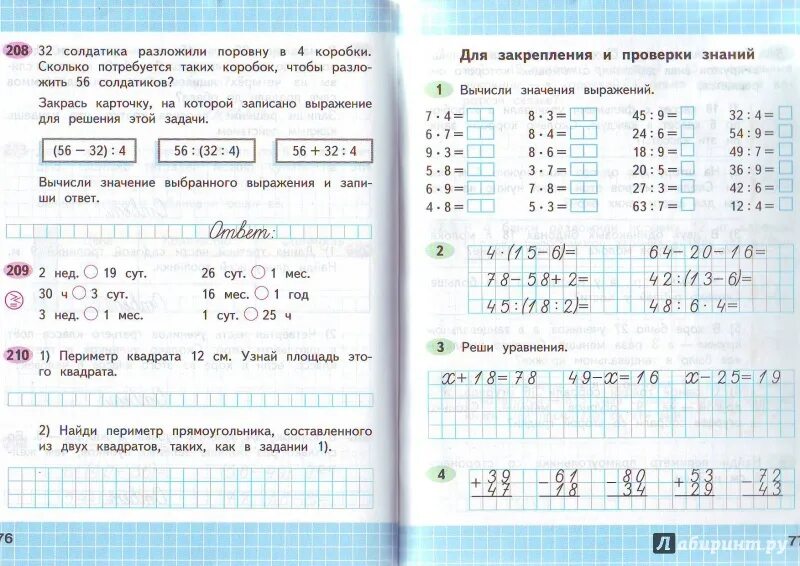 208 32 солдатика разложили поровну в 4 коробки.
Сколько потребуется таких коробок, чтобы разло-
жить 56 солдатиков?
Закрась карточку, на которой записано выражение
для решения этой задачи.
(56 − 32) : 4 56 : (32 : 4) 56 + 32 : 4
Вычисли значение выбранного выражения и запи-
ши ответ.
Ответ:
209 2 нед. 19 сут. 26 сут. 1 мес.
30 ч 3 сут. 16 мес. 1 год
3 нед. 1 мес. 1 сут. 25 ч
210 1) Периметр квадрата 12 см. Узнай площадь это-
го квадрата.
2) Найди периметр прямоугольника, составленного
из двух квадратов, таких, как в задании 1).
76
Для закрепления и проверки знаний
1 Вычисли значения выражений.
7 · 4 = 8 · 3 = 45 : 9 = 32 : 4 =
6 · 7 = 8 · 4 = 24 : 6 = 54 : 9 =
9 · 3 = 6 · 8 = 18 : 9 = 49 : 7 =
5 · 8 = 3 · 7 = 20 : 5 = 36 : 9 =
6 · 9 = 7 · 8 = 27 : 3 = 42 : 6 =
4 · 8 = 5 · 3 = 63 : 7 = 12 : 4 =
2 4·(15−6)= 64−20−16=
78−58+2= 42:(13−6)=
45:(18:2)= 48:6·4=
3 Реши уравнения.
x+18=78 49−x=16 x−25=19
4 +39 −61 −80 +53 −72
47 18 34 29 43
Лабиринт.ру